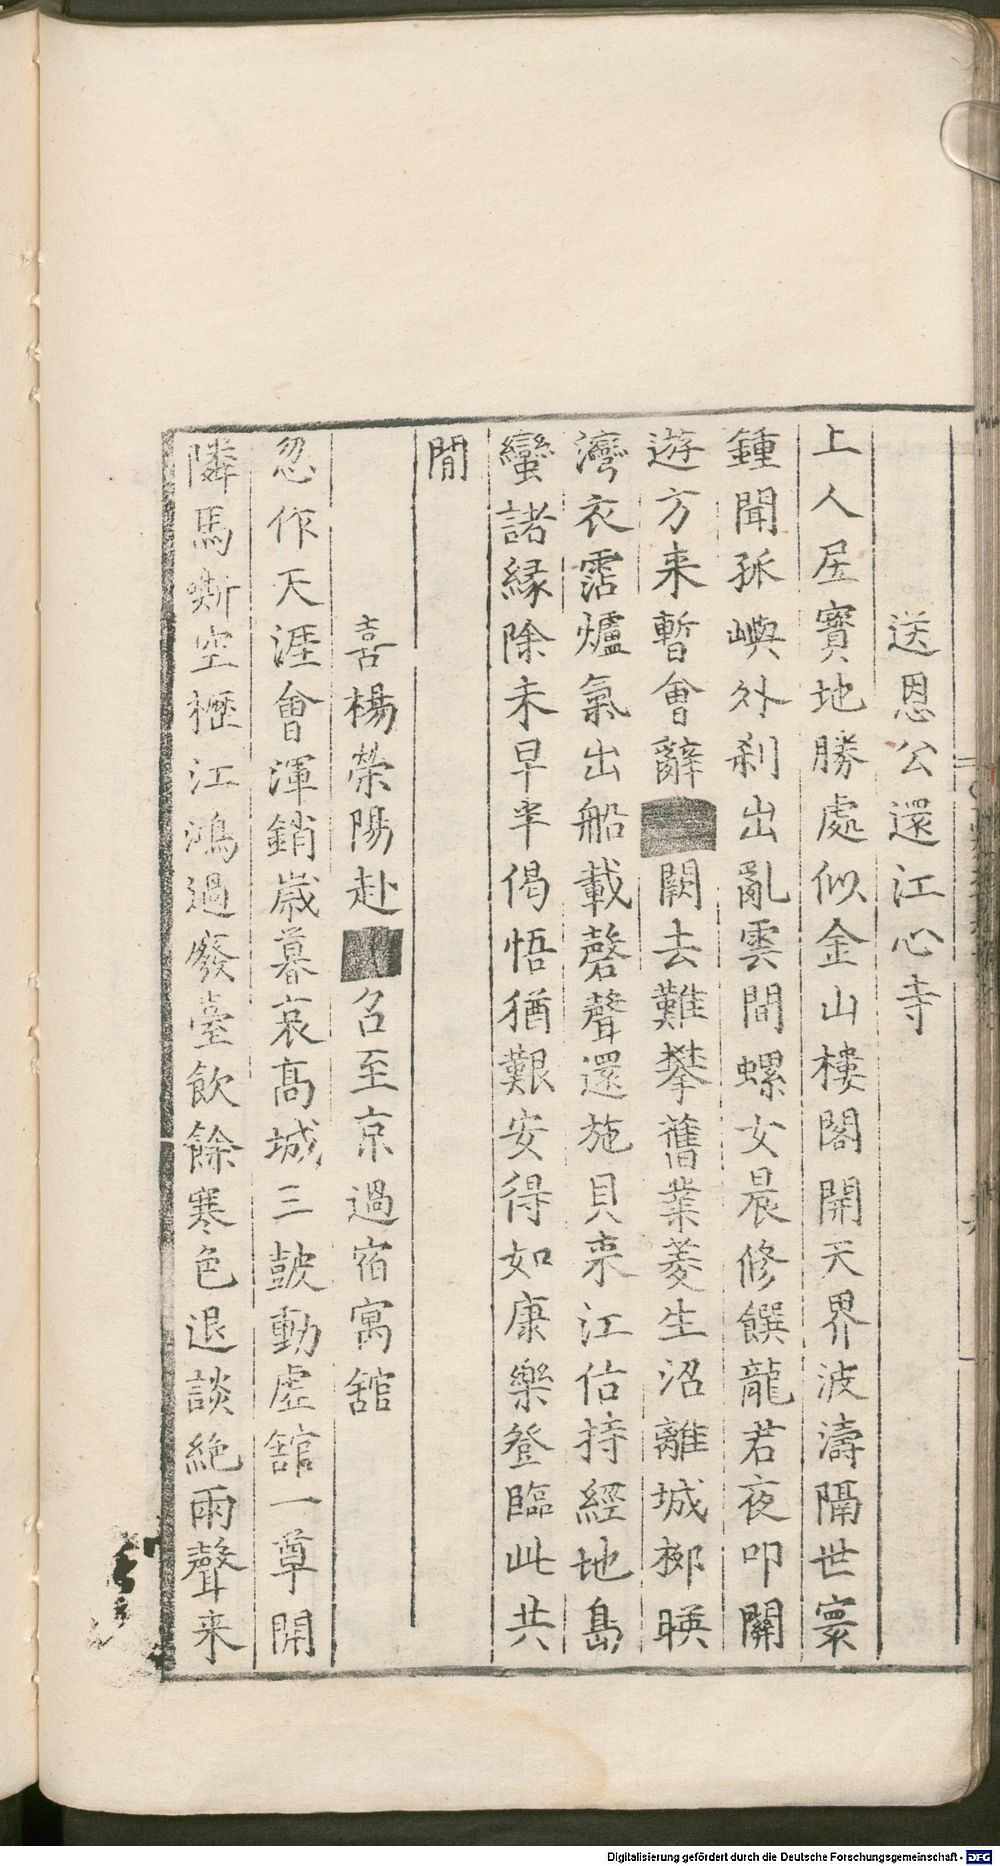 送恩公還江心寺
上人居寳地勝處似金山樓閣開天界波濤隔世寰
鍾聞孤嶼外刹出亂雲間螺女晨修饌龍君夜叩關
遊方来暫會辭闕去難攀舊業菱生沼離城栁暎
灣衣霑爐氣出船載磬聲還施貝来江估持經地島
蠻諸縁除未早半偈悟猶艱安得如康樂登臨此共
閒
喜楊榮陽赴召至京過宿寓舘
忽作天涯會渾銷嵗暮哀髙城三皷動虚舘一尊開
隣馬嘶空櫪江鴻過廢臺飲餘寒色退談絶雨聲来
Digitalisierung gefördert durch die Deutsche Forschungsgemeinschaft - DFG